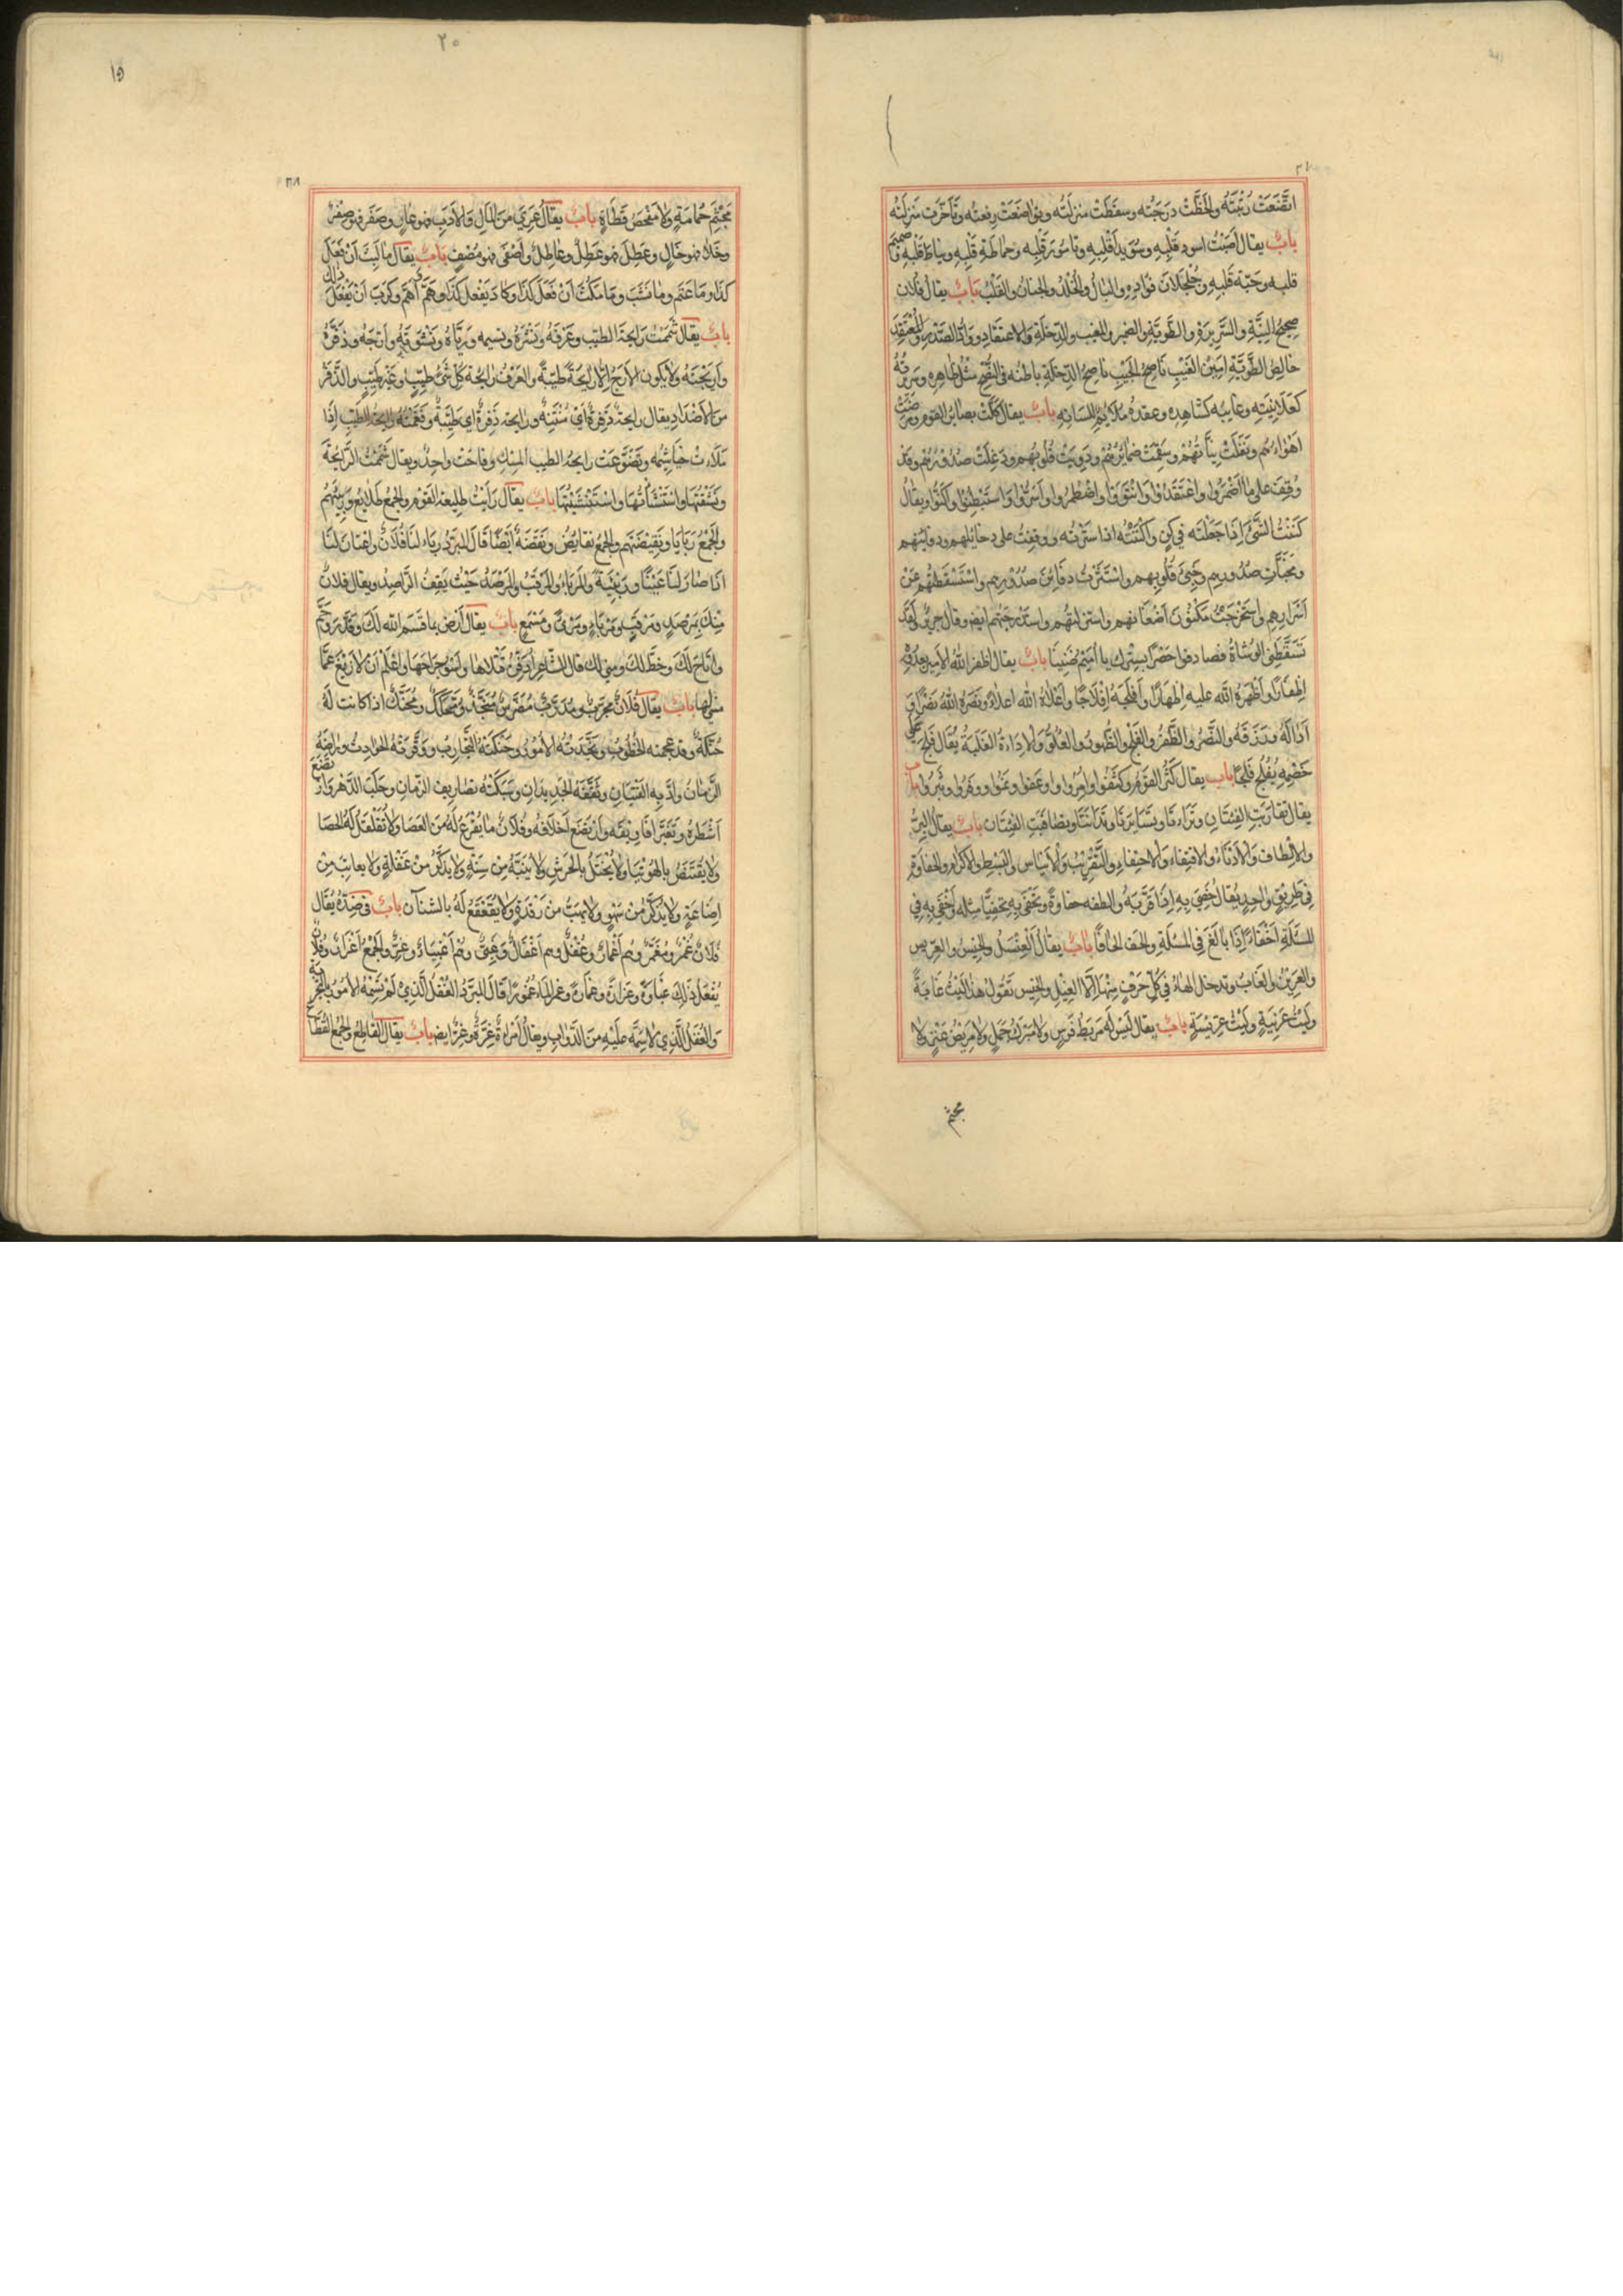 اتَّضَعَتْ رُتْبَتُه وانحَطَّتْ درَجَتُه وسقَطَتْ منزلَتُه وتواضَعَتْ رِفعتُه وتَأخّرت مَنزلَتُه
بابٌ يقال اَصَبْتُ اسود قَلْبِهِ وسُوَيدَآءَ قَلْبِهِ وتامُورَ قَلْبِهِ وحَماطَةَ قَلْبِهِ ونِياطَ قَلْبِهِ وصَميمَ
قلبِه وحَبّةَ قَلبِهِ وجُلجُلان فؤادِهِ والبَالُ والخَلَدُ والجنانُ والقَلْبُ بَابٌ يقالُ فُلان
صَحِيحُ النِيَّةِ والسَّرِيرَةِ والطَّوِيَّةِ والضمير والمغيب والدِّخلَةِ والاعتقادِ ووَادُّ الصَّدْرِ والمُعْتَقَدِ
خالِصُ الطَّوِيَّةِ اَمِينُ الغَيْبِ نَاصِحُ الجَيْبِ نَاصِحُ الدِّخْلَةِ باطنُه في النُّصْحِ مثْلُ ظاهِرِه وسَريرَتُهُ
كعَلانِيَتِه وغايبُه كشَاهِدِه وعقدُه مُلائِمٌ للسَانِهِ بابٌ يقال نَكَثَتْ بصَايرُ القوم ومَرِضَتْ
اَهْوَاءُهُم ونَغِلَتْ نِيَّاتُهُمْ وسَقِمَتْ ضمَايرُهُمْ ودَوِيَتْ قُلوبُهم ودَغِلَتْ صُدُورُهُمْ وقَدْ
وُقِفَ على ما اَضْمَرُوا واعْتَقَدُوا وَانْتَوَوْا واضْطَمَروا واَسَرُّوا وَاسْتَبْطَنُوا واَكَنُّوا ويُقالُ
كَنَنْتُ الشَّيْءَ اِذَا جَعَلْتَه فِي كِنٍّ واَكنَنْتُه اذا سَتَرْتُه ووقِفتُ على دخائلهم ودفائنهم
ومُخَبَّآتِ صدُورِهِم وخَبِيِّ قُلُوبِهِم واسْتَثَرْتُ دفَائِنَ صدُورِهِم واسْتَسْقَطْتُهُم عَنْ
اَسْرارِهِم واسْتَخرَجْتُ مَكنُونَ اَضْغَانِهم واستنزلتُهم واستَدْرَجْتُهم ايضً وقال جريرٌ ولَقَد
تَسَقَّطَني الوُشاةُ فصادفوا حَصْرًا بِسِرِّك يا اُمَيْمُ ضَنِينَا بابٌ يقال اَظفر اللهُ الامير بعدُوِّه
اِظْفَارًا واَظْهَرَهُ اللهُ عليه اِظهَارًا واَفْلَجَهُ اِفْلاجًا واَعْلاهُ اللهُ اعلاءً ونَصَرَهُ اللهُ نَصْرًا وَ
اَدَالَهُ ورَزَقَهُ والنَّصْرُ والظَّفَرُ والفَلْجُ والظُّهورُ والعُلُوُّ والادَاءَةُ الغَلَبَةُ يُقال فَلَجَ على
خَصْمِهِ يُفْلِجُ فَلْجًا بابٌ يقال كَثُرَ القوم وكَثُفُوا واَمِرُوا وعَفَوا ونَمَوا ووفَرُوا وثَرُوا باب
يقال تقارَبَتِ الفِئتَانِ وتَرَاءَتَا وتَسَايَرَتَا وتَدَانَتَا وتصَاقَبَتِ الفِئتَان بابٌ يقالُ البِرُّ
والالْطاف والادْنَاءُ والاقتِفاء والاحتِفاءِ والتَّقْرِيبُ والايناس والبَسْط والاكرام والحفاوة
في طَرِيقٍ واحِدٍ يُقالُ حَفِيَ بِهِ اِذَا قرَّبَهُ والطفه حفاوَةً وتحَفَّى بِهِ تحفِّيًا مثله واَحْفَى بِهِ فِي
المسْئَلَةِ اِحْفَاءً اِذَا بالَغَ في المسْئَلَةِ والحف الحافًا بابٌ يقالُ الغِيلُ والخِيسُ والعِرِّيس
والعَرِينُ والغَابُ وتدخل الهاءُ في كُلِّ حَرْفٍ مِنْهَا اِلَّا الغِيْلِ والخِيس تَقُولُ هذا لَيْثُ غَابَةٍ
ولَيْثُ عَرِنِيَةٍ ولَيْثُ عِرِّيسَةٍ بابٌ يقال لَيْسَ لَهُ مَرْبَطُ فَرَسٍ ولا مَبْرَكُ جَمَلٍ ولا مَرْبَضُ عَنْزٍ ولا
مجثم
٢٠
١٥
مَجْثِمُ حَمَامَةٍ ولا مَفْحَصُ قَطَاةٍ بابٌ يقالُ عَرِيَ مِنَ المَالِ وَالادَبِ فهو عارٍ وصَفِرَ فهو صِفْرٌ
وخَلا فهو خَالٍ وعَطِلَ فهو عَطِلٌ وعَاطِلٌ واَصْفَى فهو مُصْفٍ بابٌ يقال ما لَبِثَ اَنْ فَعَلَ
كذَا وما عَتَّم وما نَشَبَ وما مَكَثَ اَنْ فَعَلَ كذَا وكادَ يَفْعل كذَا وهَمَّ واَهَمَّ وكَرَبَ اَنْ يَفْعَلَ ذلك
بابٌ يقال شَمَمْتُ رَايحَةَ الطيّب وعَرْفَهُ ونَشْرَهُ ونسيمه ورَيَّاهُ ونَشْوَتَهُ واَرَجَهُ وذَفَرَهُ
واَرِيجَتَهُ ولا يكون الارَجُ اِلَّا رايحَةً طيّبَةً والعَرْفُ رايحَةُ كُلِّ شَيْءٍ طيّبٍ وغَيْرِ طيّبٍ والذَّفَرُ
مِنَ الاضْدَادِ يقال رايحةٌ ذَفِرَةٌ اَيْ مُنْتِنَةٌ ورايحةٌ ذَفِرَةٌ اي طَيِّبَةٌ وفَغَمَتْهُ رايحةُ الطيّب اِذَا
مَلَاءَتْ خَيَاشِيمَه وتَضَوَّعَتْ رايحةُ الطيب المِسْك وفَاحَتْ واحِدٌ ويقال شَمَمْتُ الرَّايحَةَ
ونَشَقْتُهَا واسْتَنْشَأتُهَا واسْتَنْشَيْتُهَا بابٌ يقال رَاَيْتُ طليعة القَوْم والجمعُ طَلايعُ ورَبِيئَتَهُمْ
والجَمْعُ رَبَايَا ونَفِيضَتَهُم والجمعُ نَفَايِضُ ونَفَضَةً اَيْضًا قَالَ المبَرِّدُ رَبَاءَ لنَا فُلانٌ واعْتَانَ لَنَا
اذَا صَارَ لنَا عَيْنًا ورَبِيئَةً والمَرْبَاءُ والمَرْقَبُ والمَرْصَدُ حَيْثُ يَقِفُ الرَّاصِدُ ويقال فلانٌ
مِنْكَ بِمَرْصَدٍ ومَرْقَبٍ ومَرْبَاءٍ ومَرْأًى ومَسْمَعٍ بابٌ يقال اَرْضَ بما قَسَم الله لكَ وقَدَّرَ وحَمَّ
واَتَاحَ لَكَ وخَطَّ لكَ ومنى لك قال الشَّاعِرُ
مثلها بابٌ يقال فُلانٌ مُجَرَّبٌ ومُدَرَّبٌ مُضَرَّسٌ مُنَجَّذٌ ومُحَكَّكٌ ومُحَنَّكٌ اذا كانت لَهُ
حُنْكَةٌ وقد عجمته الخُطُوبُ ونَجَّذَتْهُ الامُورُ وحَنَّكَتْهُ التَّجَارِبُ ووَقَّرَتْهُ الحَوَادِثُ ورَاضَهُ
الزَّمَانُ وادَّبه الفَتَيَانِ وثَقَّفَهُ الجَدِيدَانِ وسَبَكَتْهُ تصاريف الزمَانِ وحَلَبَ الدَّهْرَ
اَشْطُرَهُ
ولا يُقْتَنَصُ بالهُوَيْنَا ولا يُخْتَلُ بالحَرْشِ ولا يُنَبَّهُ مِنْ سِنَةٍ ولا يُذَكَّرُ مِنْ غَفْلَةٍ ولا يعاتَبُ مِنْ
اِضَاعَةٍ ولا يُذَكَّرُ مِنْ سَهْوٍ ولا يهبّ مِنْ رَقْدَةٍ ولا يُقَعْقَعُ لَهُ بالشنَان بابٌ في ضِدِّهِ يُقَال
فُلانٌ غُمْرٌ ومُغَمَّرٌ وهُم اَغْمَارٌ وغُفْلٌ وهم اَغْفَالٌ وغَبِيٌّ وهُمْ اَغْبِيَاءُ وغِرٌّ والجَمْعُ اَغْرَارٌ وفُلانٌ
يَفْعَلُ ذلِكَ غَبَاوَةً وغَرَارَةً وغَمَارَةً قَالَ المُبَرِّدُ الغُفْلُ الَّذِيْ لَمْ تَسِمْهُ الامُورُ بالتجربة
والغُفْلُ الَّذِي لا سِمَةَ عَلَيْهِ مِنَ الدَّوابِ ويقالُ امْرَاَةٌ غِرَّةٌ وغِرٌّ ايضً بابٌ يقال القَاطِعُ والجَمْعُ القُطَّاعُ